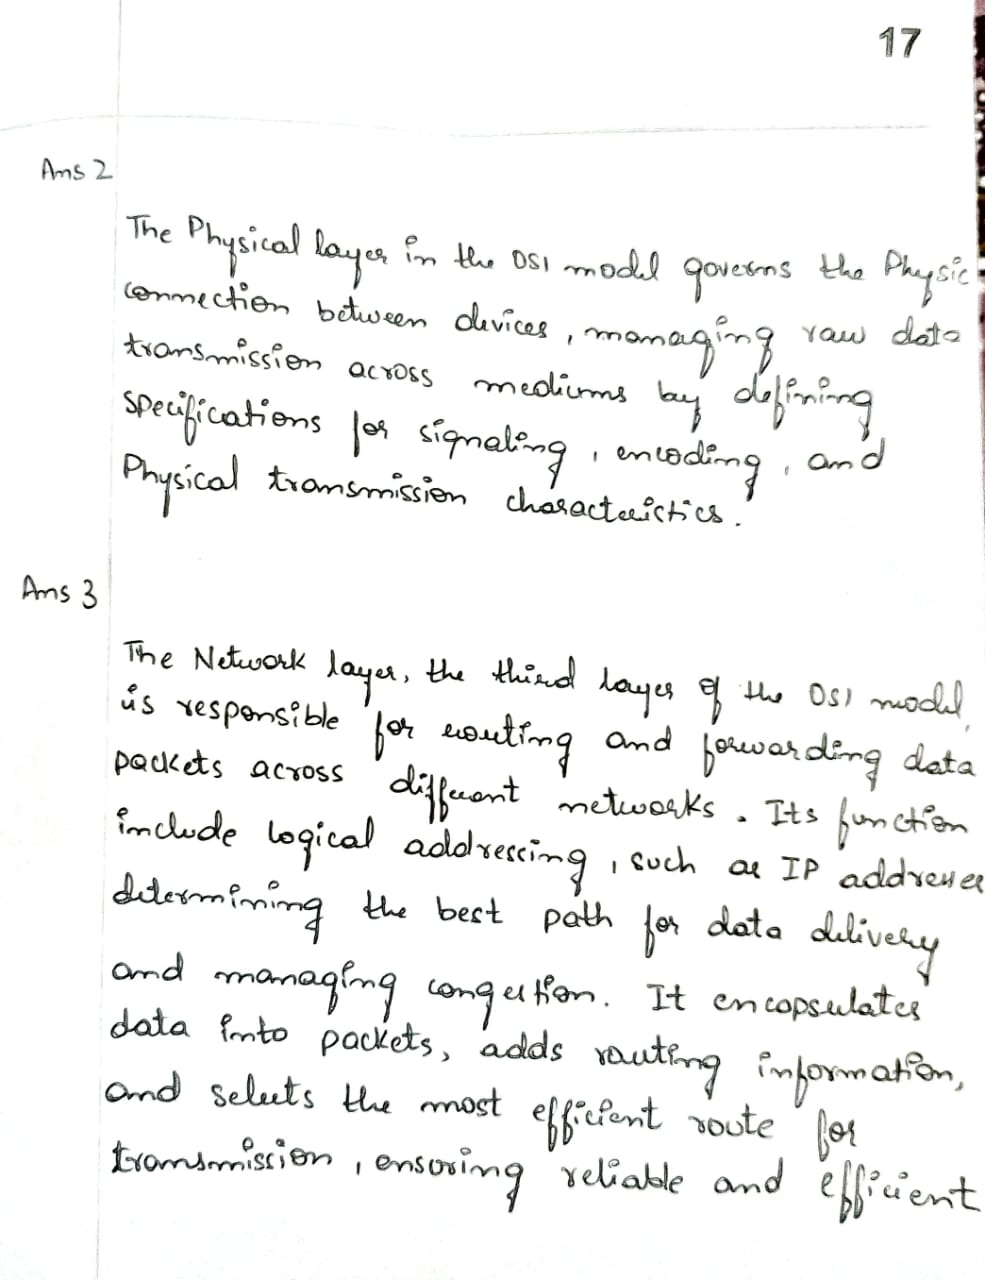 17
Ans 2
The Physical layer in the OSI model governs the Physic
connection between devices, managing raw data
transmission across mediums by defining
specifications for signaling, encoding, and
Physical transmission characteristics.
Ans 3
The Network layer, the third layer of the OSI model,
is responsible for routing and forwarding data
packets across different networks. Its function
include logical addressing, such as IP addresses
determining the best path for data delivery
and managing congestion. It encapsulates
data into packets, adds routing information,
and selects the most efficient route for
transmission, ensuring reliable and efficient